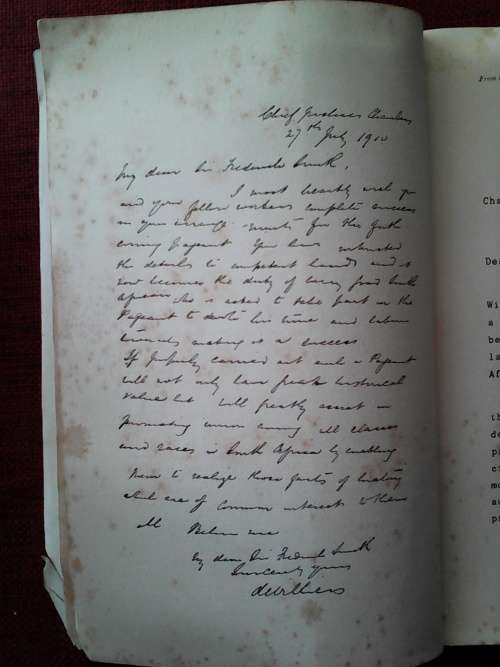 Chief Justices Chambers
27th July 1910
My dear Sir Frederick Smith,
I most heartily wish you
and your fellow workers complete success
in your arrangements for the forth
coming Pageant. You have entrusted
the details to competent hands and it
now becomes the duty of every good South
African who is asked to take part in the
Pageant to devote his time and labour
towards making it a success
If properly carried out such a Pageant
will not only have great historical
value but will greatly assist in
promoting union among all classes
and races in South Africa by enabling
them to realize those parts of history
which are of common interest to them
all Believe me
My dear Sir Frederick Smith
Sincerely yours
de Villiers
From
Cha
Dea
Wi
a
be
la
Af
th
de
p
c
mo
a
p